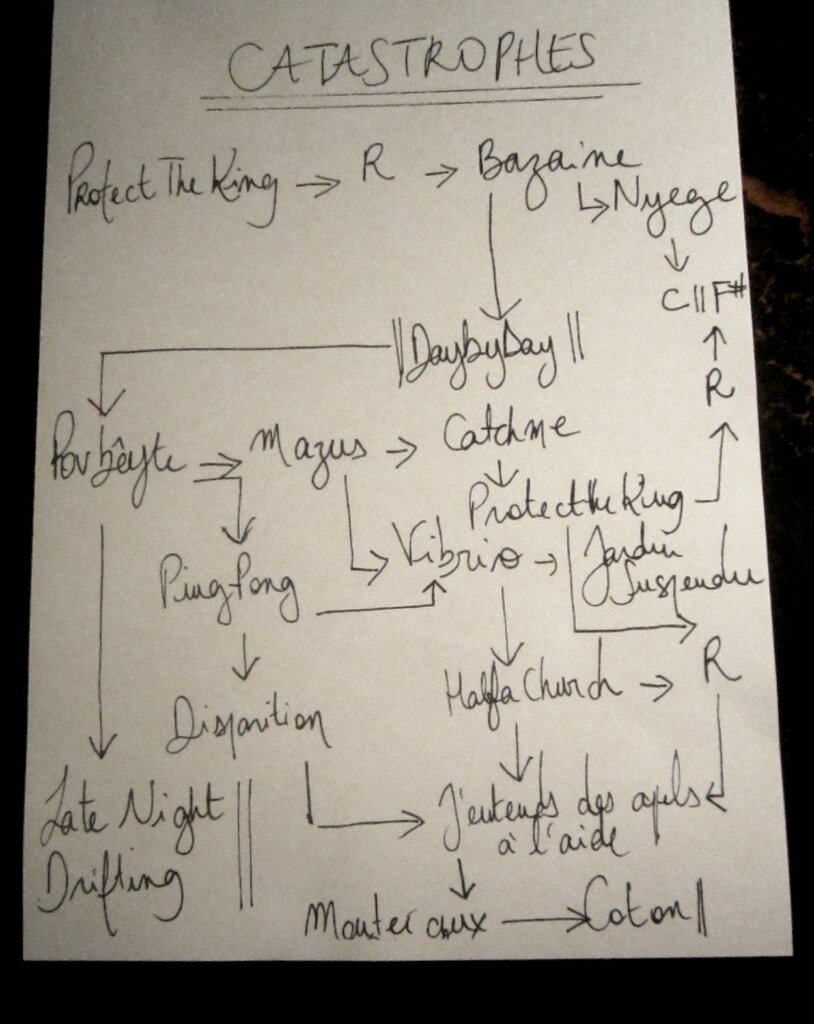 CATASTROPHES
Protect The King → R → Bazaine
↳ Nyege
↓
C || F#
|| Day by Day ||
R
Catchme
Mazus →
Protect the King
Vibrio → Jardin
Suspendu
Ping Pong
Half a Church → R
Disparition
Late Night ||
J'entends des apels
à l'aide
Drifting
→ Coton ||